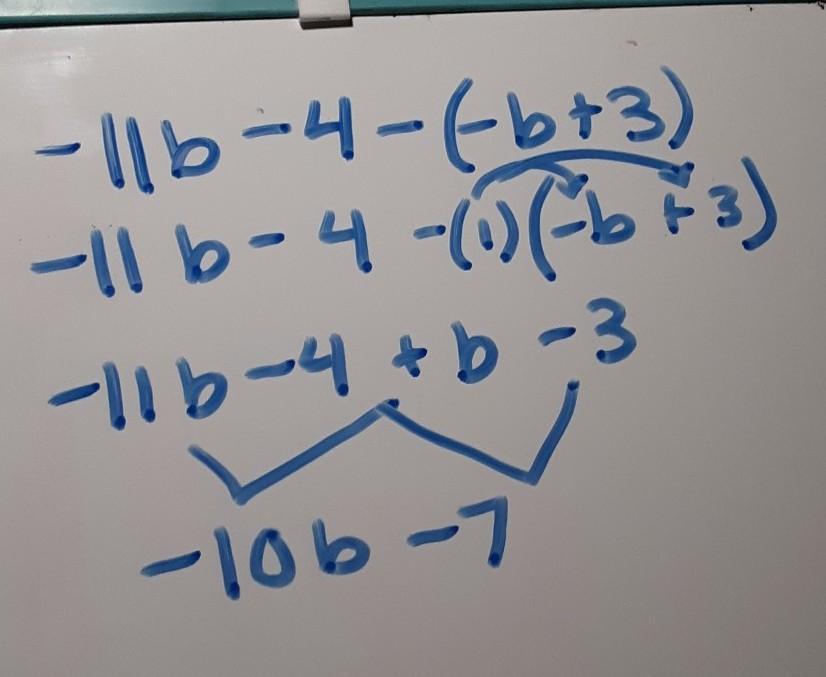 -11b - 4 - (-b + 3)
-11b - 4 -(1)(-b + 3)
-11b - 4 + b - 3
-10b - 7